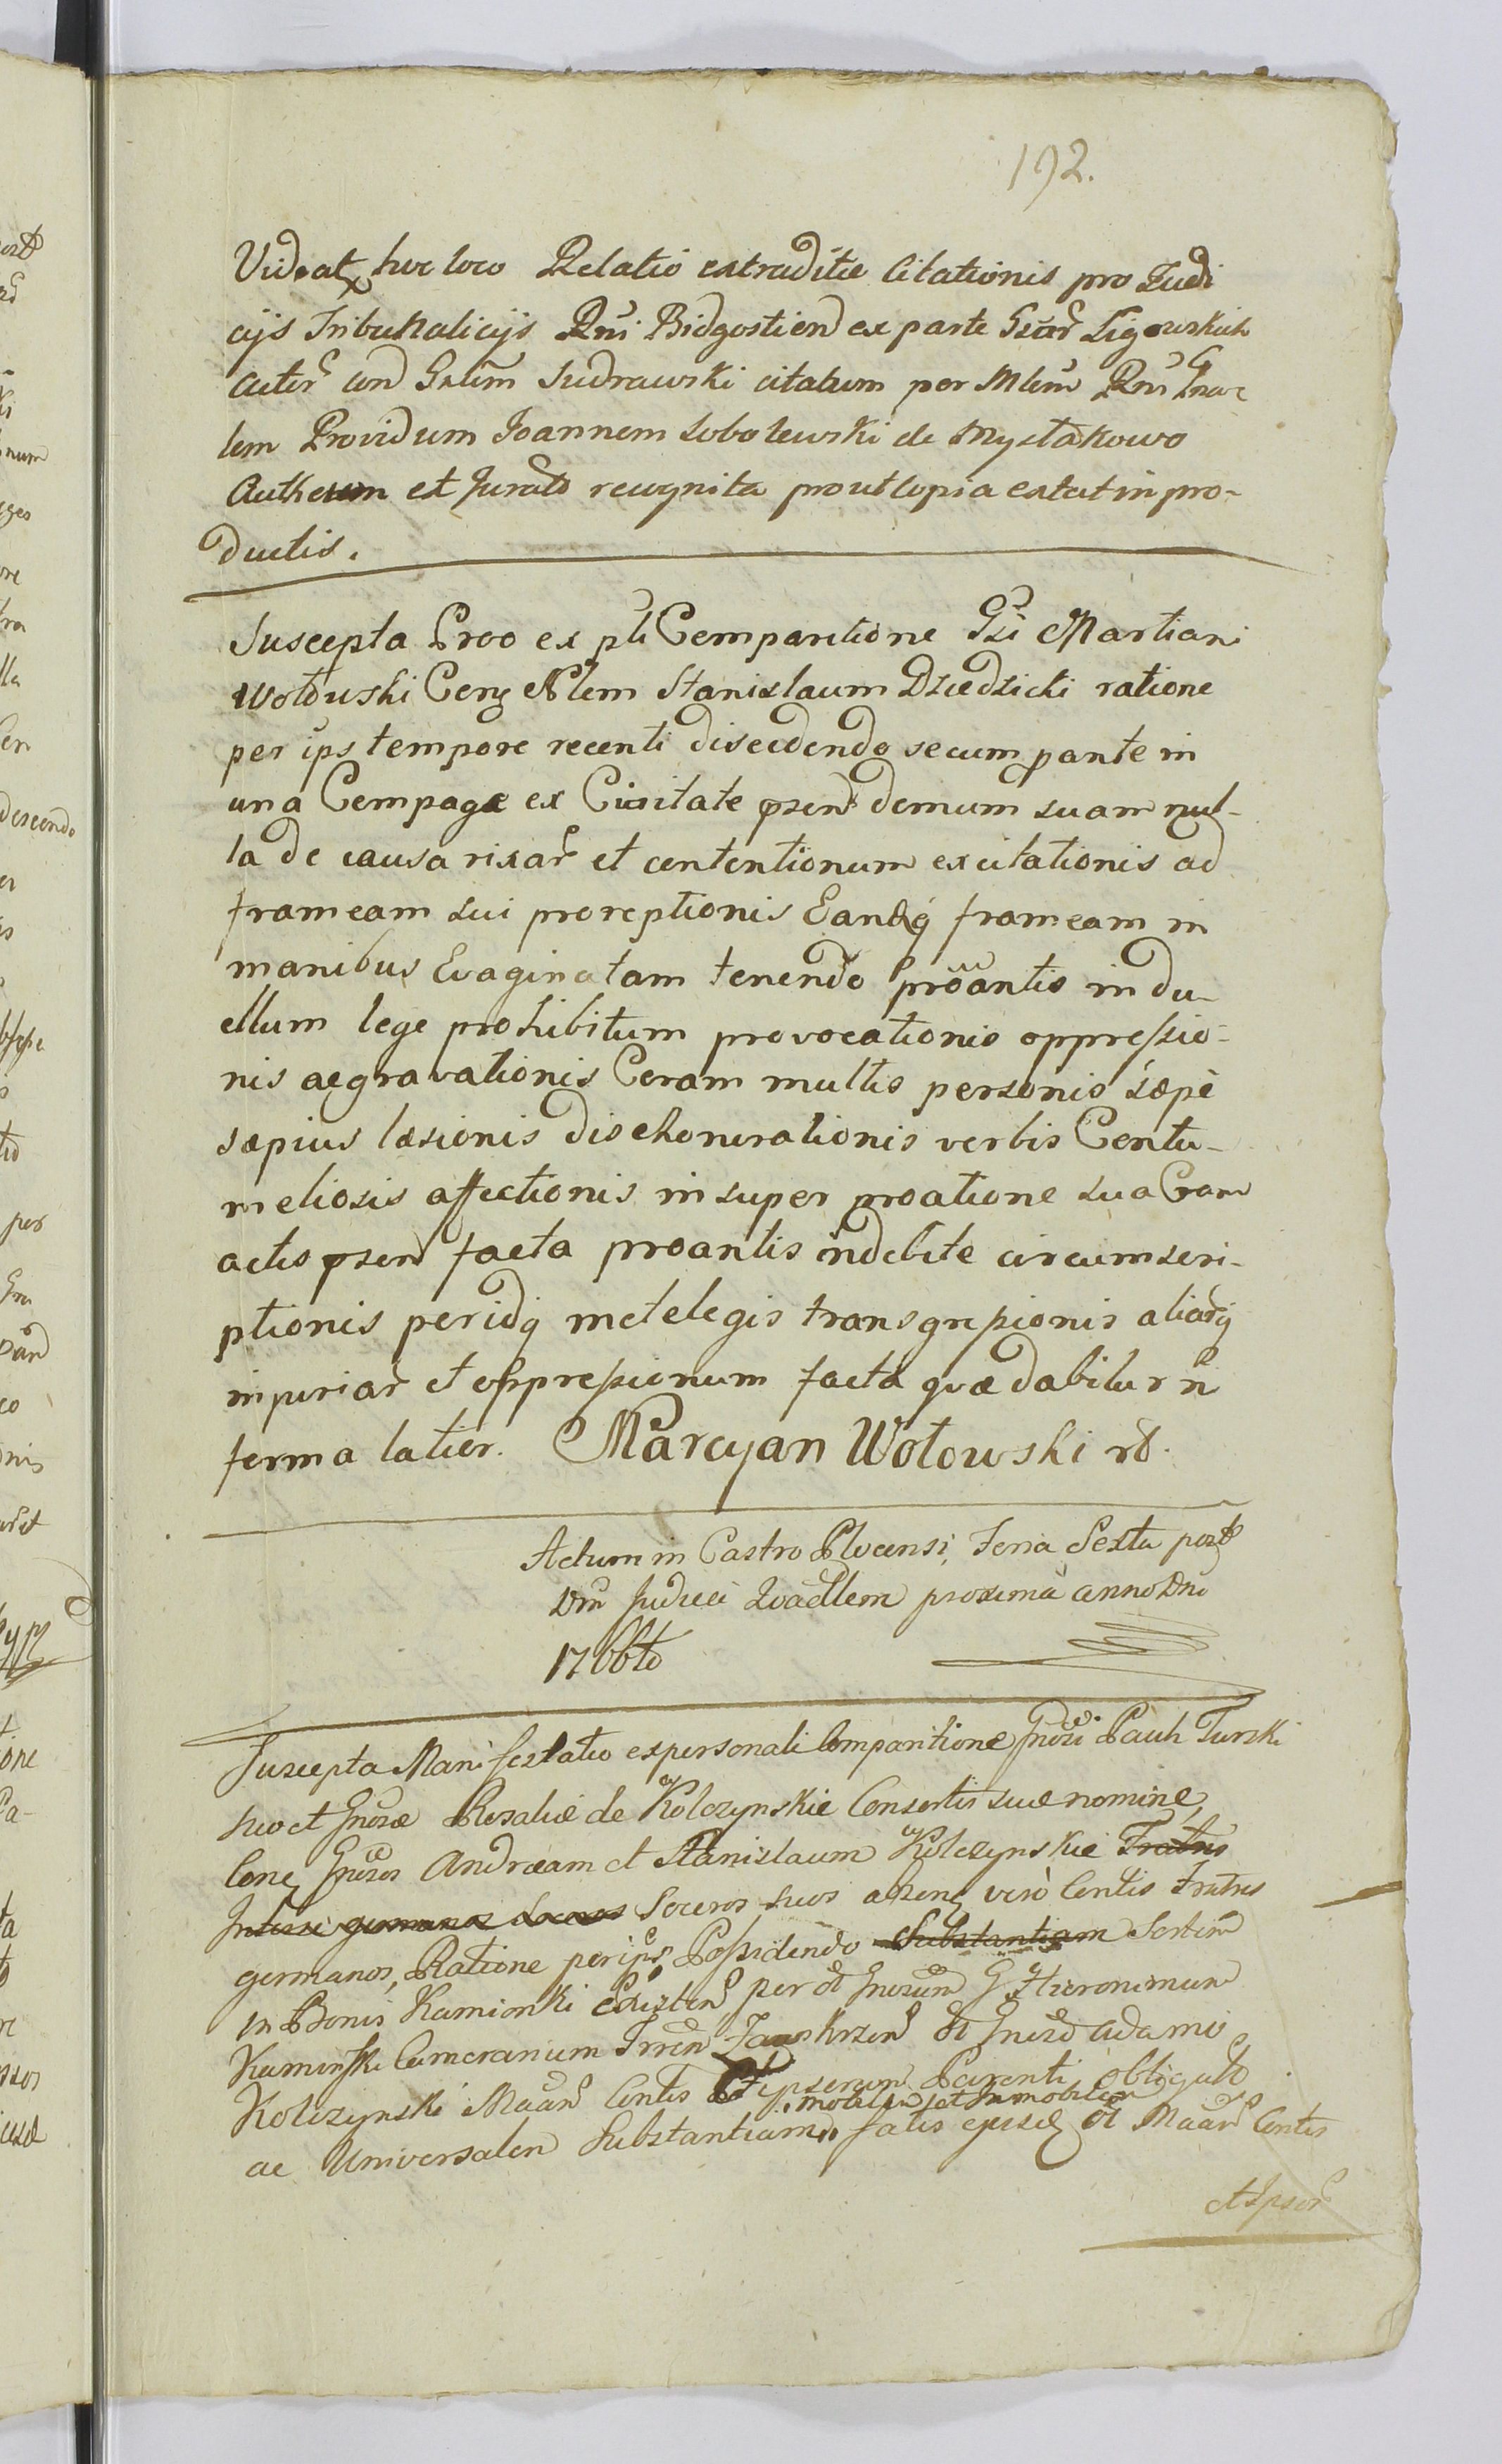 192.
Videat hoc loco Relatio extraditæ Citationis pro Judi
cijs Tribunalicijs Rni Bidgostien ex parte Gsar Ligowskich
Actor con Gslm Sudrawski citatum per Mlem Rni Gnar
lem Providum Joannem Sobolewski de Mystkowo
Authen et Jurato recognita prout Copia extat in pro-
ductis.
Suscepta Proo ex pli Comparitione Gsi Martiani
Wołowski Con Nlem Stanislaum Dziedzicki ratione
per ips tempore recenti discedendo secum proante in
una Compage ex Civitate præsen domum suam nul-
la de causa rixar et contentionum excitationis ad
frameam sui proreptionis Eandq frameam in
manibus Evaginatam tenendo proantis in du-
ellum lege prohibitum provocationis oppressio-
nis aegravationis Coram multis personis sæpè
sæpius læsionis dishonorationis verbis Contu-
meliosis affectionis insuper proatione sua Coram
actis præsen facta proantis indebite circumscri-
ptionis peridq metæ legis transgressionis aliarq
injuriar et oppressionum facta quæ dabitur in
forma latior. Marcyan Wołowski mp.
Actum in Castro Plocensi, Feria Sexta post
Dm Judica Quadlem proxima anno Dni
1766to
Suscepta Manifestatio ex personali Comparitione Gnosi Pauli Turski
suo et Gnosæ Rosaliæ de Kolczynskie Consortis suæ nomine,
Con Gnosos Andream et Stanislaum Kolczynskie Fratres
germanos Soceros suos absen vero Contis Fratres
germanos, Ratione per ips Possidendo Substantiam Sortem
in Bonis Kamionki Existen per ol Gnosum G Hieronimum
Kaminski Cameranium Terren Zawskrzen ol Gnoso Adamo
Kolczynski Maan Contis et ipsorum Parenti obligato
mobilem et Immobilem
ac Universalem Substantiam fatis ejusd ol Maan Contis
et Ipsor